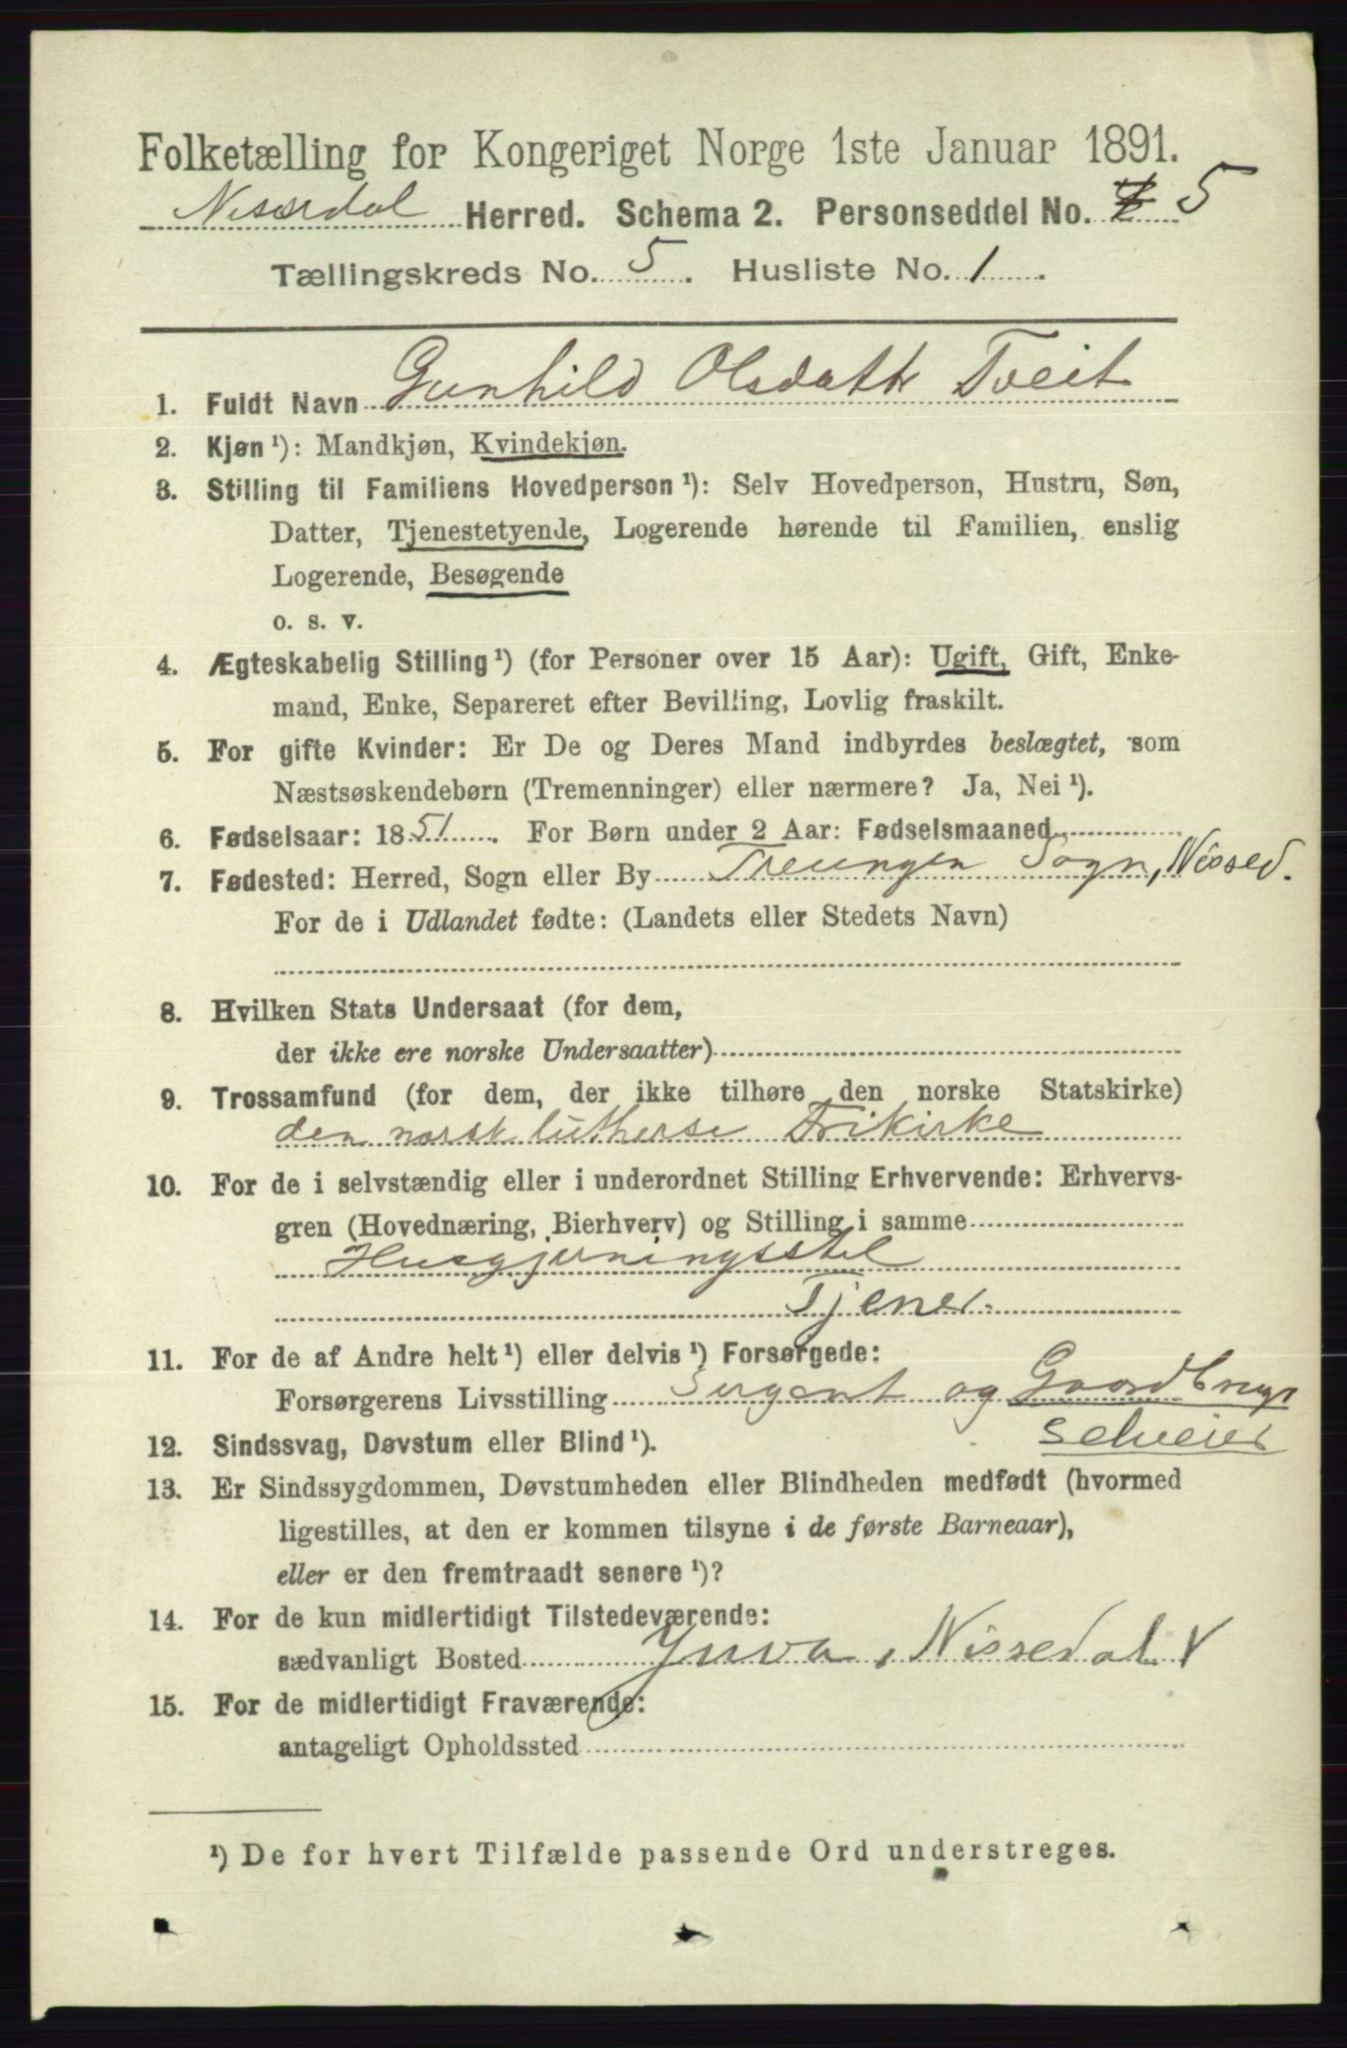 Folketælling for Kongeriget Norge 1ste Januar 1891.
Nissedal Herred. Schema 2. Personseddel No. 5
Tællingskreds No. 5. Husliste No. 1.
1. Fuldt Navn Gunhild Olsdattr Tveit
2. Kjøn ¹): Mandkjøn, Kvindekjøn.
3. Stilling til Familiens Hovedperson ¹): Selv Hovedperson, Hustru, Søn,
Datter, Tjenestetyende, Logerende hørende til Familien, enslig
Logerende, Besøgende
o. s. v.
4. Ægteskabelig Stilling ¹) (for Personer over 15 Aar): Ugift, Gift, Enke-
mand, Enke, Separeret efter Bevilling, Lovlig fraskilt.
5. For gifte Kvinder: Er De og Deres Mand indbyrdes beslægtet, som
Næstsøskendebørn (Tremenninger) eller nærmere? Ja, Nei ¹).
6. Fødselsaar: 1851. For Børn under 2 Aar: Fødselsmaaned
7. Fødested: Herred, Sogn eller By Treungen Sogn, Nissed.
For de i Udlandet fødte: (Landets eller Stedets Navn)
8. Hvilken Stats Undersaat (for dem,
der ikke ere norske Undersaatter)
9. Trossamfund (for dem, der ikke tilhøre den norske Statskirke)
den norsk lutherse Frikirke
10. For de i selvstændig eller i underordnet Stilling Erhvervende: Erhvervs-
gren (Hovednæring, Bierhverv) og Stilling i samme
Husgjerningsstel
Tjener.
11. For de af Andre helt ¹) eller delvis ¹) Forsørgede:
Forsørgerens Livsstilling Sergent og Gaardbruger
selveier
12. Sindssvag, Døvstum eller Blind ¹).
13. Er Sindssygdommen, Døvstumheden eller Blindheden medfødt (hvormed
ligestilles, at den er kommen tilsyne i de første Barneaar),
eller er den fremtraadt senere ¹)?
14. For de kun midlertidigt Tilstedeværende:
sædvanligt Bosted Nissedal
15. For de midlertidigt Fraværende:
antageligt Opholdssted
¹) De for hvert Tilfælde passende Ord understreges.